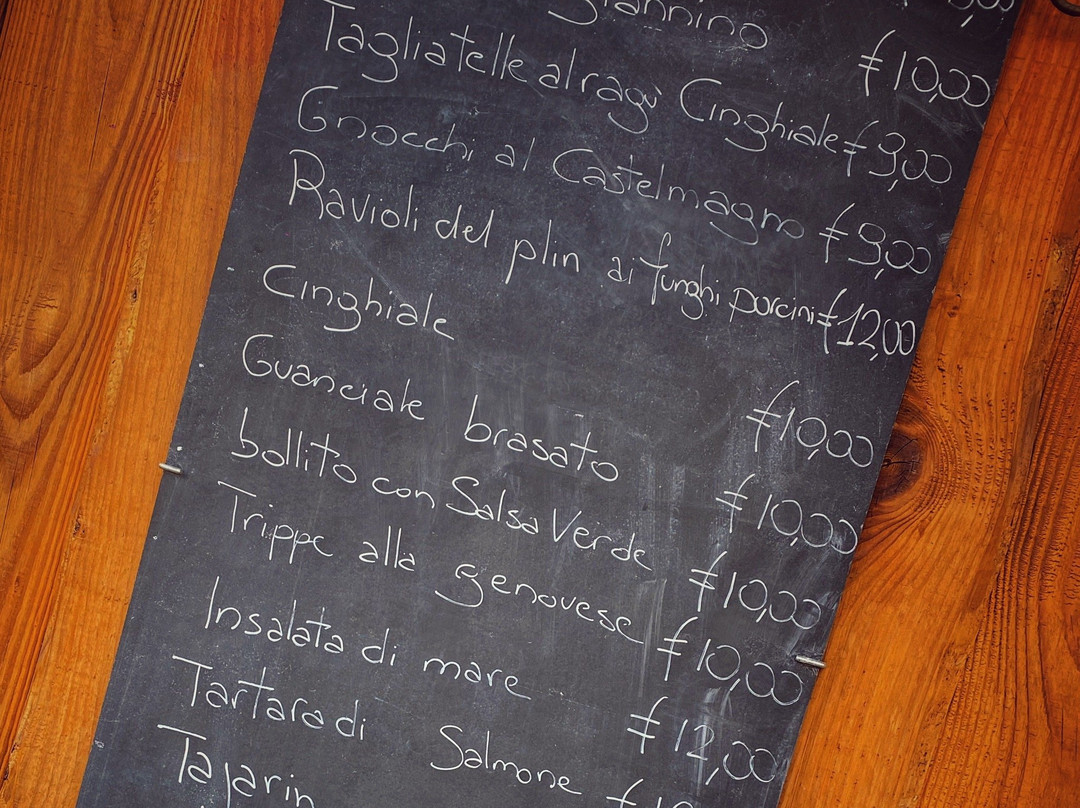 giannino €10,00
Tagliatelle al ragù Cinghiale €9,00
Gnocchi al Castelmagno €9,00
Ravioli del plin ai funghi porcini €12,00
Cinghiale €10,00
Guanciale brasato €10,00
bollito con Salsa Verde €10,00
Trippe alla genovese €10,00
Insalata di mare €12,00
Tartara di Salmone
Tajarin